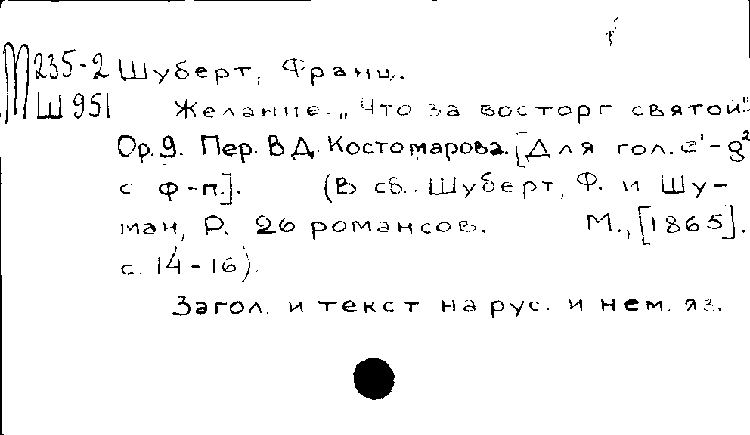 М235-2 Шуберт, Франц.
Ш951 Желание. „Что за восторг святой".
Op. 9. Пер. В.Д. Костомарова. [Для гол. e¹-g²
с ф-п.]. (В сб.: Шуберт, Ф. и Шу-
ман, Р. 26 романсов. М., [1865].
с. 14-16).
Загол. и текст на рус. и нем. яз.